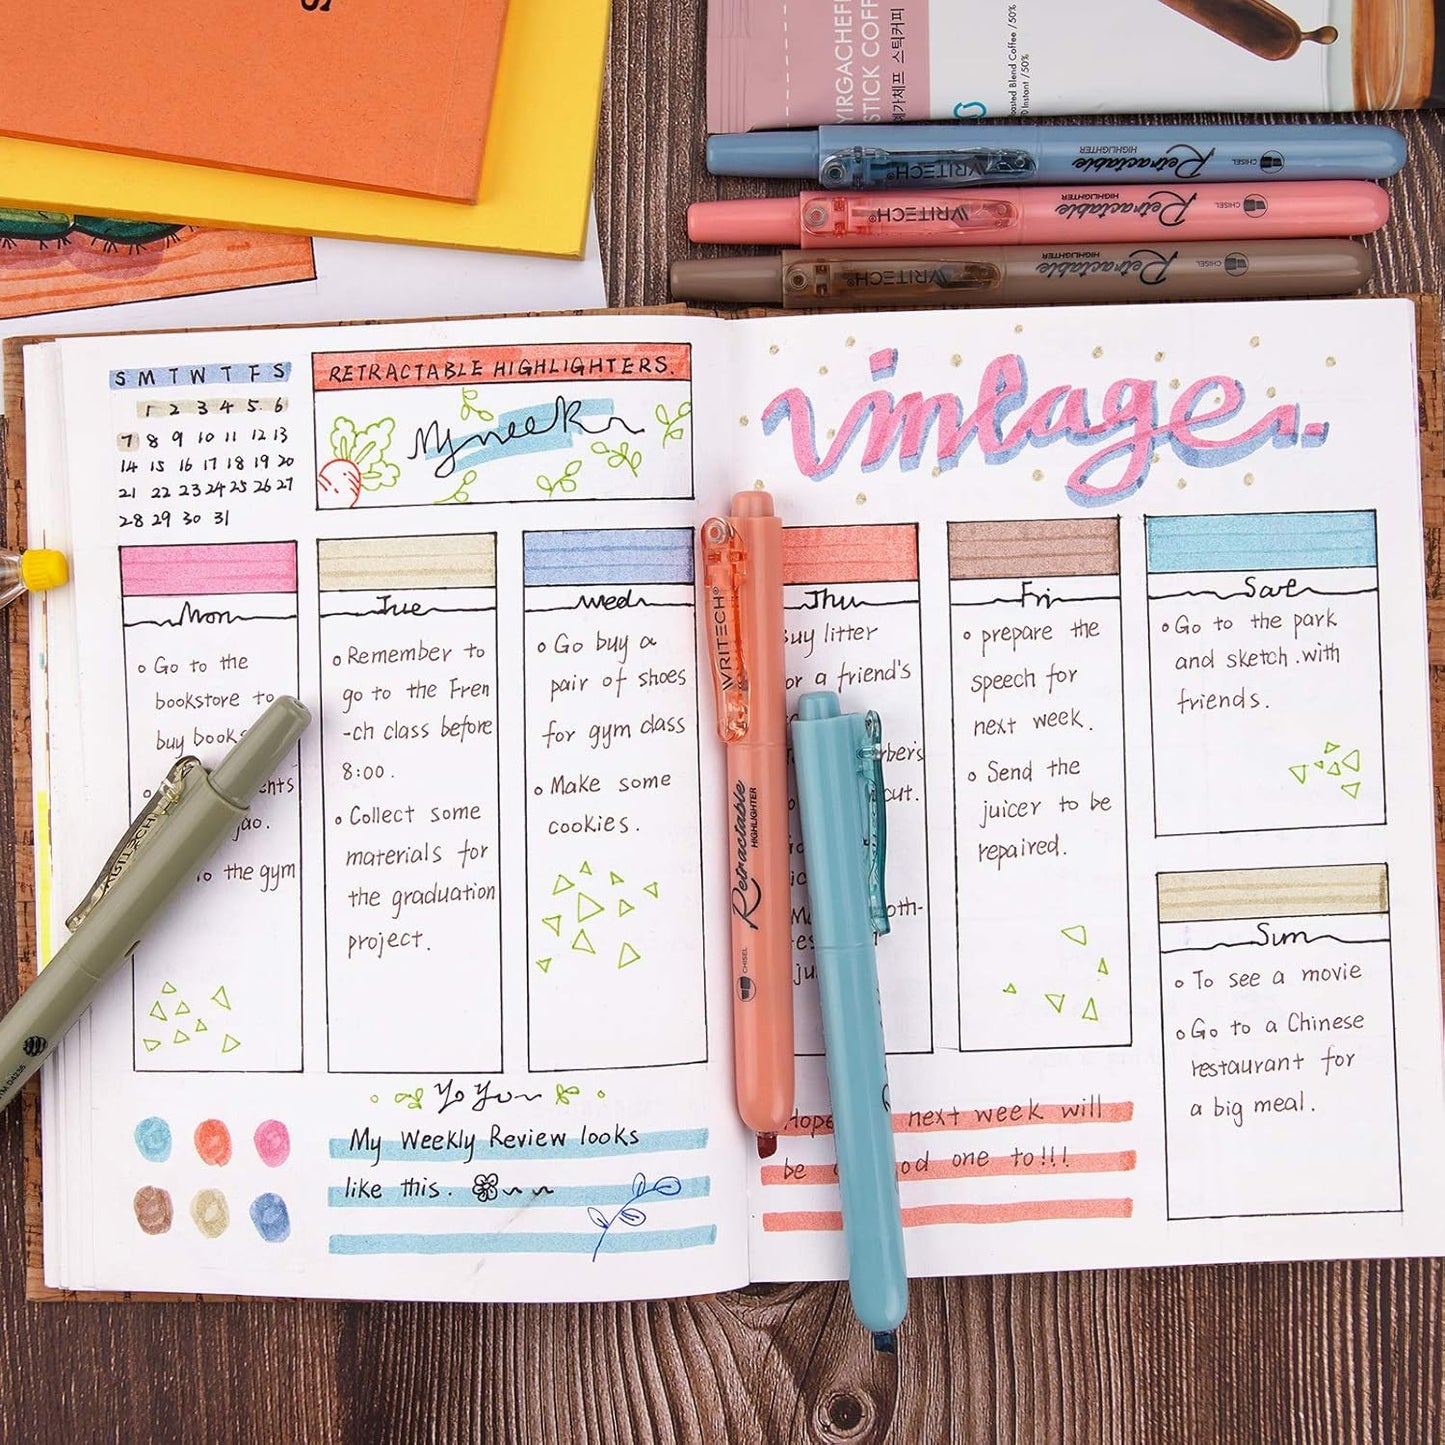 S
YIRGACHEFFE
STICK COFF
예가체프 스틱커피
Roasted Blend Coffee / 50%
Instant / 50%
WRITECH® Retractable HIGHLIGHTER CHISEL
WRITECH® Retractable HIGHLIGHTER CHISEL
WRITECH® Retractable HIGHLIGHTER CHISEL
S M T W T F S
1 2 3 4 5 6
7 8 9 10 11 12 13
14 15 16 17 18 19 20
21 22 23 24 25 26 27
28 29 30 31
RETRACTABLE HIGHLIGHTERS.
My week
vintage
Mon
Go to the
bookstore to
buy book
ents
jao.
to the gym
Tue
Remember to
go to the Fren
-ch class before
8:00.
Collect some
materials for
the graduation
project.
Wed
Go buy a
pair of shoes
for gym class
Make some
cookies.
Thu
Buy litter
or a friend's
rber's
cut.
oth-
ju
Fri
prepare the
speech for
next week.
Send the
juicer to be
repaired.
Sat
Go to the park
and sketch.with
friends.
Sun
To see a movie
Go to a Chinese
restaurant for
a big meal.
WRITECH
WRITECH® Retractable HIGHLIGHTER CHISEL
Yo Yu
My Weekly Review looks
like this.
Hope next week will
be a od one to!!!